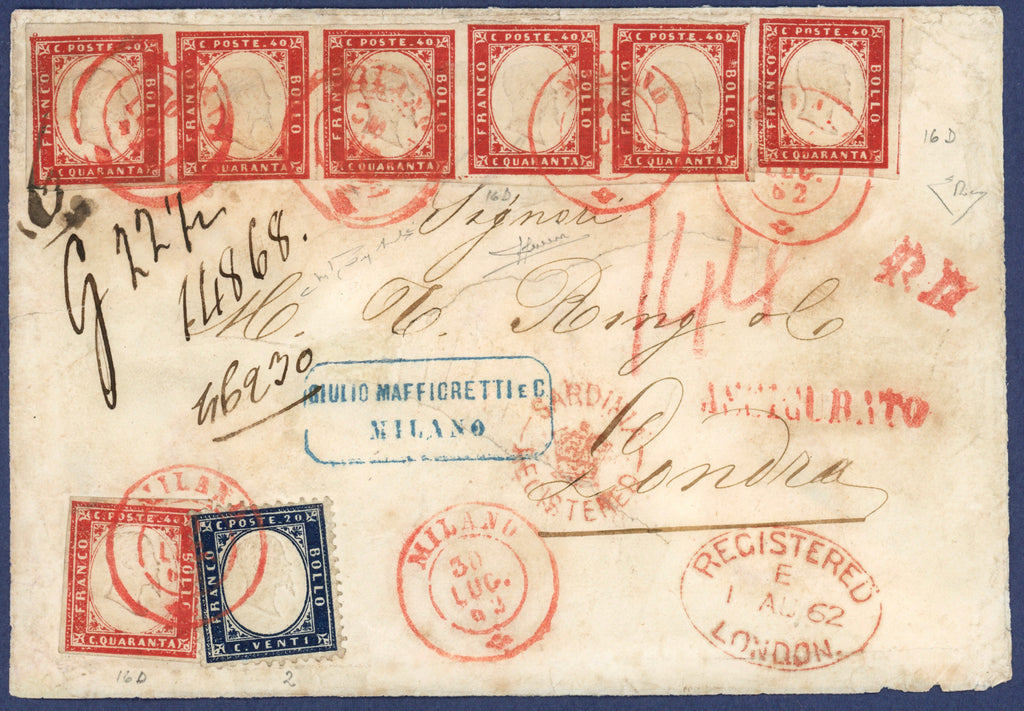 C. POSTE. 40 FRANCO BOLLO C. QUARANTA
C. POSTE. 40 FRANCO BOLLO C. QUARANTA
C. POSTE. 40 FRANCO BOLLO C. QUARANTA
C. POSTE. 40 FRANCO BOLLO C. QUARANTA
C. POSTE. 40 FRANCO BOLLO C. QUARANTA
C. POSTE. 40 FRANCO BOLLO C. QUARANTA
LUG.
62
16 D
16 D
Signori
G 22
14868.
46930
M. Ring & C
Londra
ASSICURATO
GIULIO MAFFIORETTI E C.
MILANO
SARDINIA
REGISTERED
MILANO
C. POSTE. 40 FRANCO BOLLO C. QUARANTA
C. POSTE. 20 FRANCO BOLLO C. VENTI
MILANO
30
LUG.
62
REGISTERED
E
1 AU 62
LONDON.
16 D
2